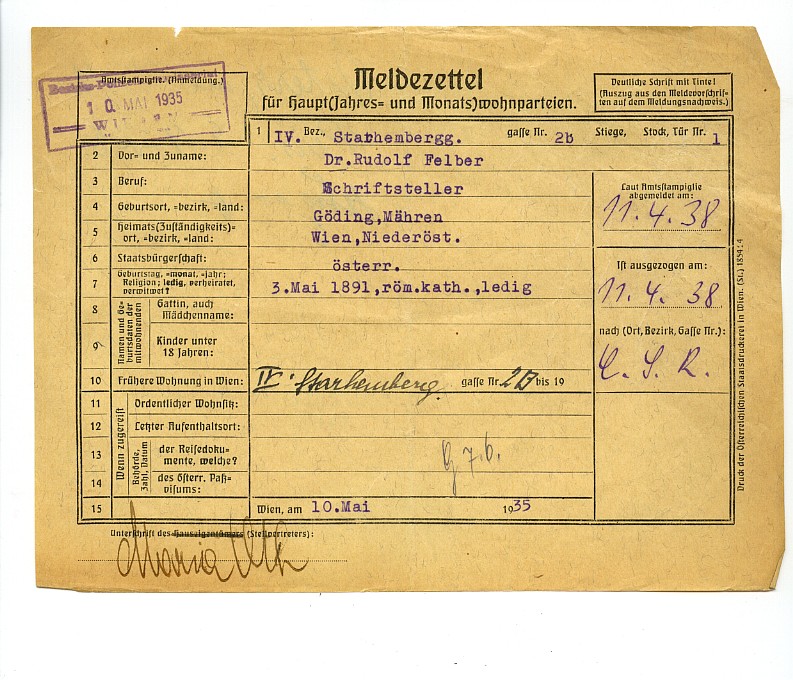 Amtsstampiglie. (Anmeldung.)
10. MAI 1935
WIEDEN
Meldezettel
für Haupt(Jahres= und Monats)wohnparteien.
Deutliche Schrift mit Tinte!
(Auszug aus den Meldevorschrif=
ten auf dem Meldungsnachweis.)
1 IV. Bez., Starhembergg. gasse Nr. 2b Stiege, Stock, Tür Nr. 1
2 Vor= und Zuname: Dr.Rudolf Felber
3 Beruf: Schriftsteller
4 Geburtsort, =bezirk, =land: Göding,Mähren
5 Heimats(Zuständigkeits)=
ort, =bezirk, =land: Wien,Niederöst.
6 Staatsbürgerschaft: österr.
7 Geburtstag, =monat, =jahr;
Religion; ledig, verheiratet,
verwitwet? 3.Mai 1891,röm.kath.,ledig
Namen und Ge=
burtsdaten der
mitwohnenden
8 Gattin, auch
Mädchenname:
9 Kinder unter
18 Jahren:
10 Frühere Wohnung in Wien: IV. Starhemberg gasse Nr. 2B bis 19
Wenn zugereist
11 Ordentlicher Wohnsitz:
12 Letzter Aufenthaltsort:
Behörde,
Zahl, Datum
13 der Reisedoku=
mente, welche?
14 des österr. Paß=
visums:
15 Wien, am 10.Mai 1935
Laut Amtsstampiglie
abgemeldet am:
11. 4. 38
Ist ausgezogen am:
11. 4. 38
nach (Ort, Bezirk, Gasse Nr.):
C. S. R.
Unterschrift des Hauseigentümers (Stellvertreters):
Maria
Druck der Österreichischen Staatsdruckerei in Wien. (St.) 1854 14